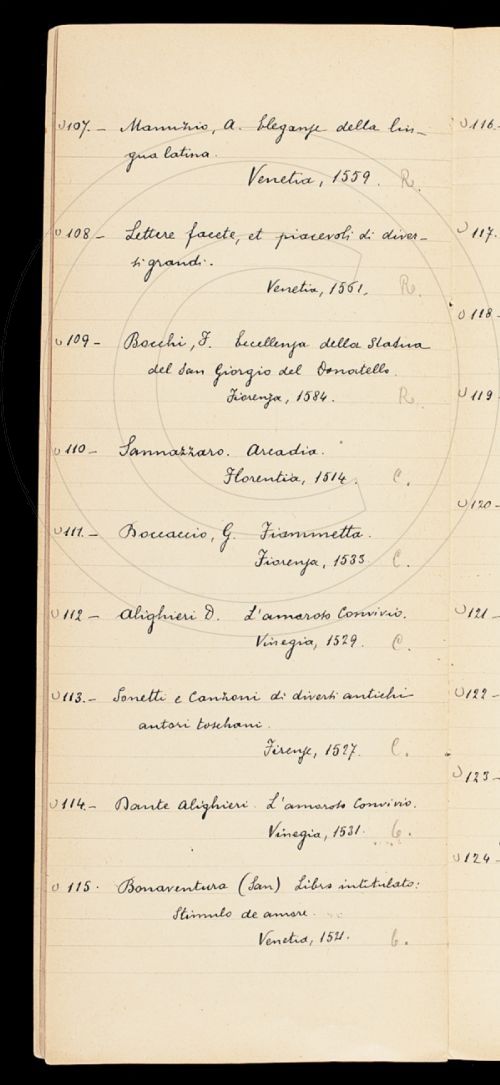 107.- Manuzio, A. Eleganze della lin-
gua latina.
Venetia, 1559. R.
108- Lettere facete, et piacevoli di diver-
si grandi.
Venetia, 1561. R.
109- Bocchi, F. Eccellenza della Statua
del San Giorgio del Donatello.
Fiorenza, 1584. R.
110- Sannazzaro. Arcadia.
Florentia, 1514. C.
111.- Boccaccio, G. Fiammetta.
Fiorenza, 1533. C.
112- Alighieri D. L'amoroso Convivio.
Vinegia, 1529. C.
113.- Sonetti e Canzoni di diversi antichi
autori toschani.
Firenze, 1527. C.
114.- Dante Alighieri. L'amoroso Convivio.
Vinegia, 1531. C.
115. Bonaventura (San) Libro intitulato:
Stimulo de amore.
Venetia, 1521. C.
116.-
117.
118-
119
120-
121
122-
123-
124-